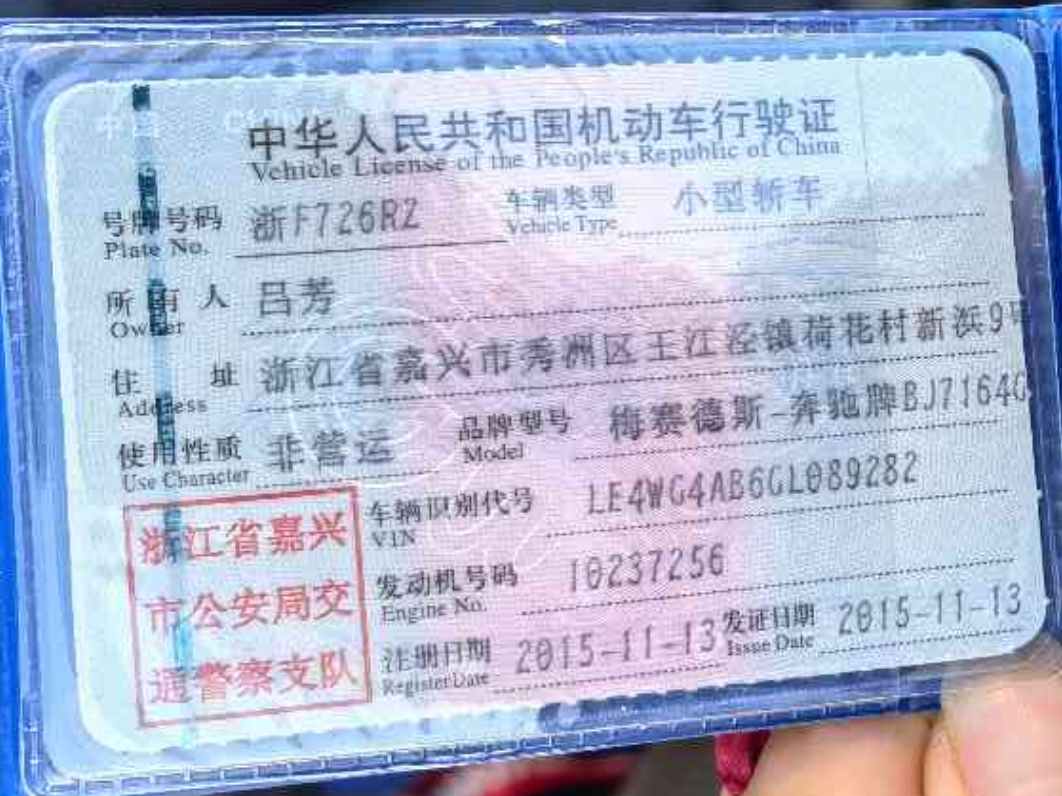 中华人民共和国机动车行驶证
Vehicle License of the People's Republic of China
号牌号码 浙F726RZ 车辆类型 小型轿车
Plate No. Vehicle Type
所有人 吕芳
Owner
住址 浙江省嘉兴市秀洲区王江泾镇荷花村新浜9号
Address
使用性质 非营运 品牌型号 梅赛德斯-奔驰牌BJ7164
Use Character Model
浙江省嘉兴
市公安局交
通警察支队
车辆识别代号 LE4WG4AB6GL089282
VIN
发动机号码 10237256
Engine No.
注册日期 2015-11-13 发证日期 2015-11-13
Register Date Issue Date